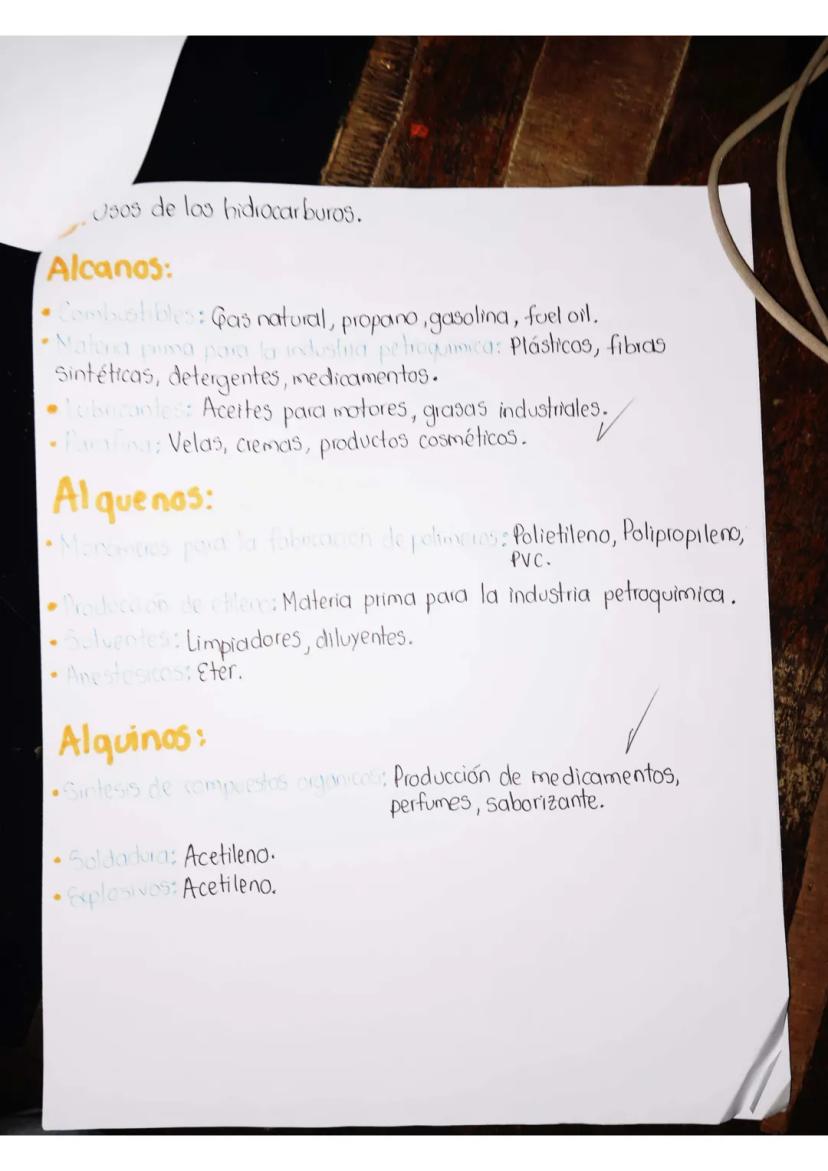 Usos de los hidrocarburos.
Alcanos:
• Combustibles: Gas natural, propano, gasolina, fuel oil.
• Materia prima para la industria petroquimica: Plásticos, fibras
sintéticas, detergentes, medicamentos.
• Lubricantes: Aceites para motores, grasas industriales.
• Parafina: Velas, cremas, productos cosméticos.
Alquenos:
• Monómeros para la fabricación de polimeros: Polietileno, Polipropileno,
PVC.
• Producción de etileno: Materia prima para la industria petroquimica.
• Solventes: Limpiadores, diluyentes.
• Anestesicos: Eter.
Alquinos:
• Sintesis de compuestos organicos: Producción de medicamentos,
perfumes, saborizante.
• Soldadura: Acetileno.
• Explosivos: Acetileno.